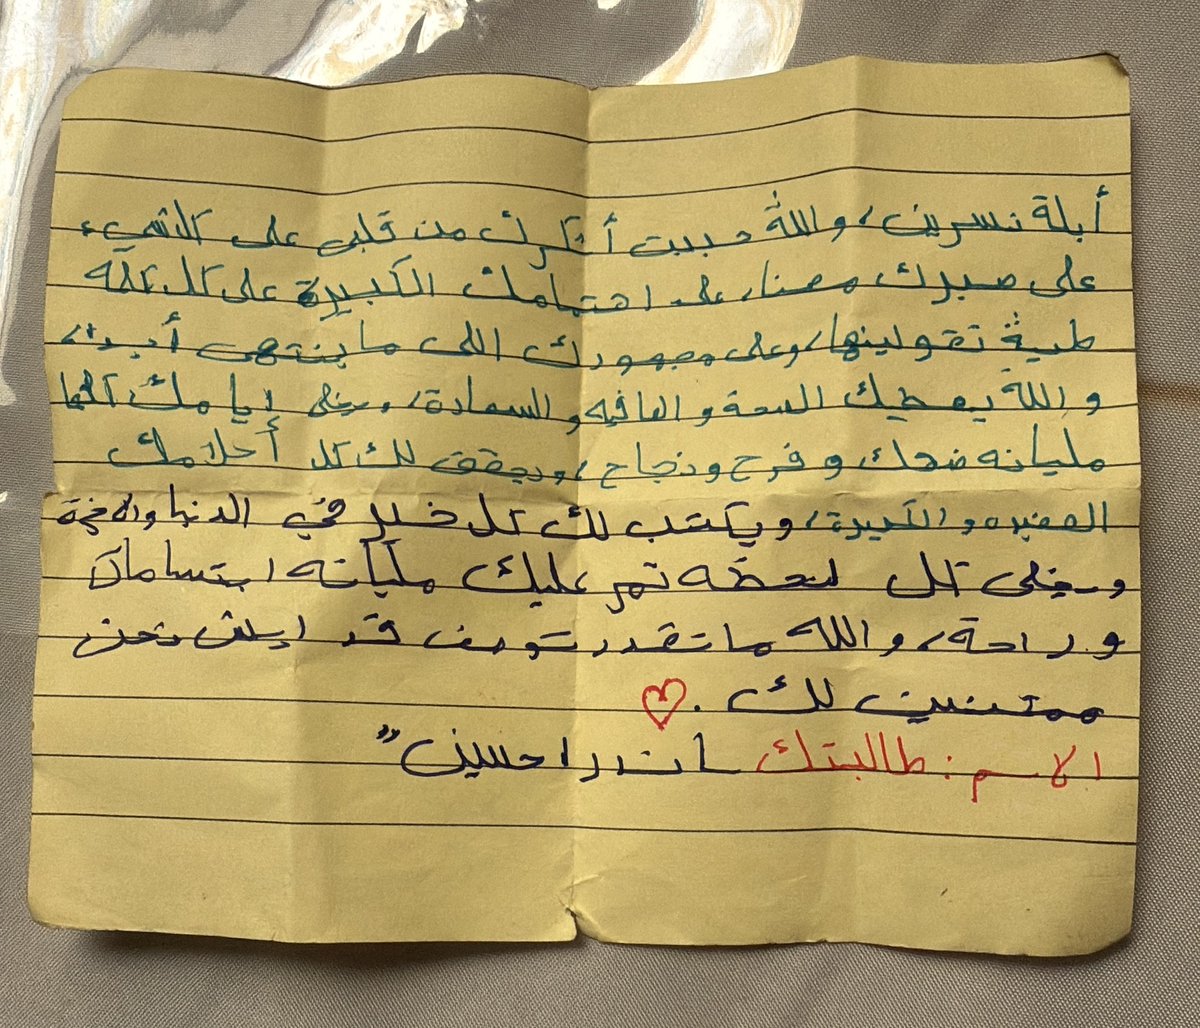 أبلة نسرين، والله حبيت أشكرك من قلبي على كل شيء
على صبرك معنا، على اهتمامك الكبيرة على كل كلمه
طيبة تقولينها، وعلى مجهودك اللي ما ينتهي أبداً،
والله يعطيك الصحة والعافيه والسعادة، ويخلي ايامك كلها
مليانه ضحك وفرح ونجاح، ويحقق لك كل أحلامك
الصغيره والكبيرة، ويكتب لك كل خير في الدنيا والاخرة
ويخلي كل لحظه تمر عليك مليانه ابتسامات
وراحة، والله ماتقدر توصف قد ايش نحن
ممتنين لك.
الاسم: طالبتك حسين"